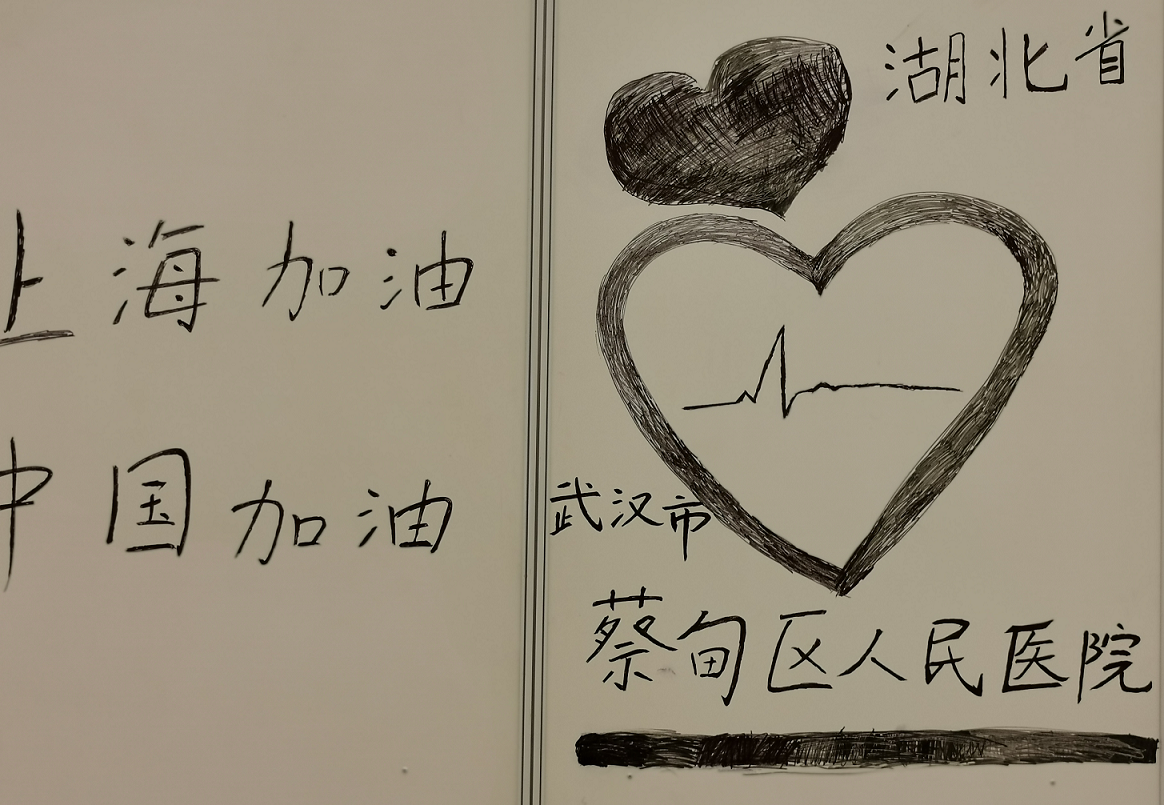 上海加油
中国加油
湖北省
武汉市
蔡甸区人民医院